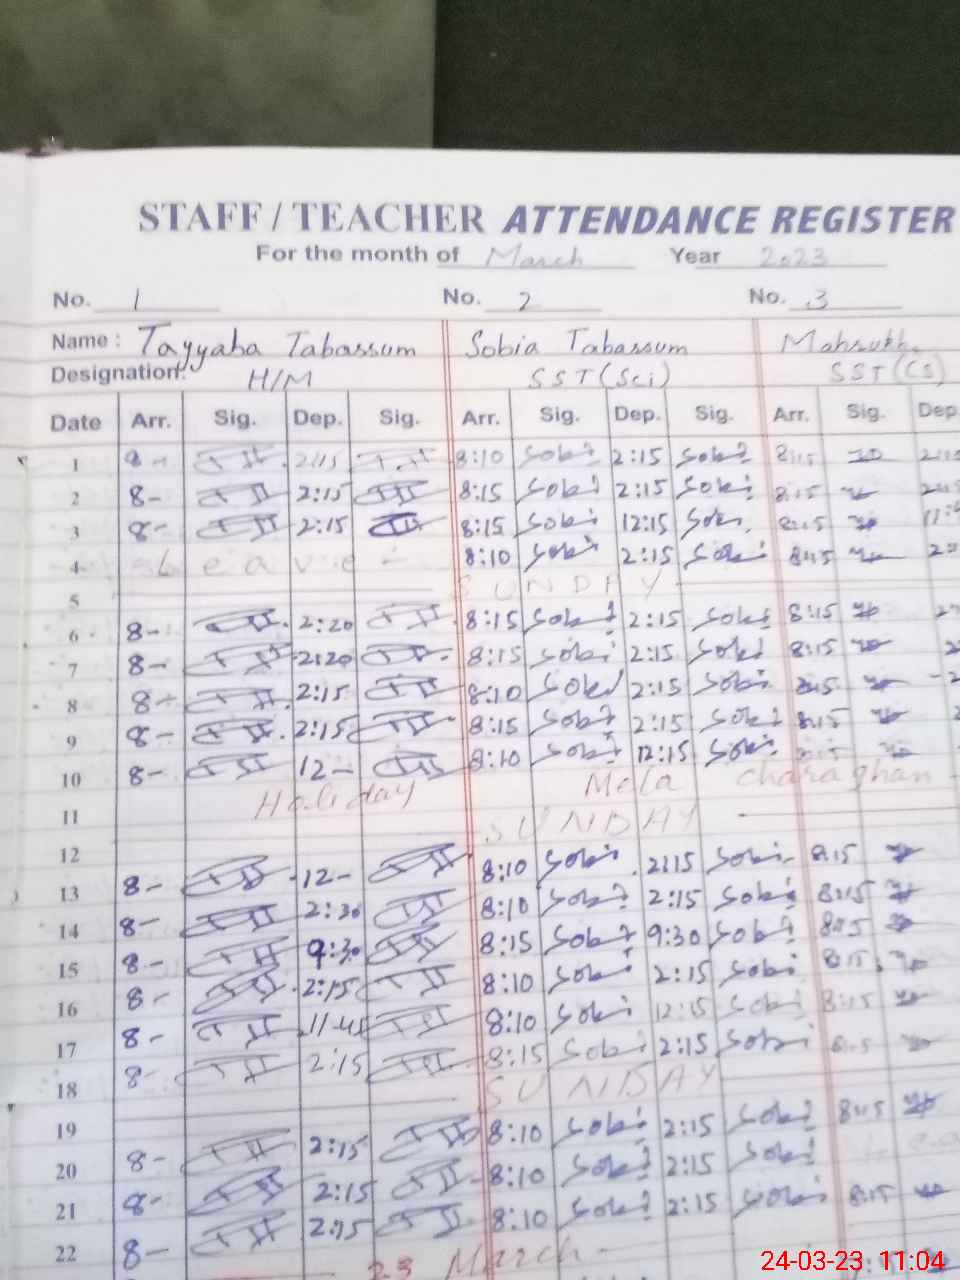 STAFF / TEACHER ATTENDANCE REGISTER
For the month of March Year 2023
No. 1 No. 2 No. 3
Name : Tayyaba Tabassum Sobia Tabassum Mahrukh
Designation: H/M SST(Sci) SST(CS)
Date Arr. Sig. Dep. Sig. Arr. Sig. Dep. Sig. Arr. Sig. Dep.
1 8- 2:15 8:10 Sobi 2:15 Sobi 8:15
2 8- 2:15 8:15 Sobi 2:15 Sobi 8:15
3 8- 2:15 8:15 Sobi 12:15 Sobi 8:15
4 Leave 8:10 Sobi 2:15 Sobi 8:15
5 SUNDAY
6 8- 2:20 8:15 Sobi 2:15 Sobi 8:15
7 8- 2:20 8:15 Sobi 2:15 Sobi 8:15
8 8- 2:15 8:10 Sobi 2:15 Sobi 8:15
9 8- 2:15 8:15 Sobi 2:15 Sobi 8:15
10 8- 12- 8:10 Sobi 12:15 Sobi
11 Holiday Mela charaghan
12 SUNDAY
13 8- 12- 8:10 Sobi 2:15 Sobi 8:15
14 8- 2:30 8:10 Sobi 2:15 Sobi 8:15
15 8- 9:30 8:15 Sobi 9:30 Sobi 8:15
16 8- 2:15 8:10 Sobi 2:15 Sobi 8:15
17 8- 11-45 8:10 Sobi 12:15 Sobi 8:15
18 8- 2:15 8:15 Sobi 2:15 Sobi
19 SUNDAY
20 8- 2:15 8:10 Sobi 2:15 Sobi 8:15
21 8- 2:15 8:10 Sobi 2:15 Sobi
22 8- 2:15 8:10 Sobi 2:15 Sobi 8:15
23 March
24-03-23 11:04